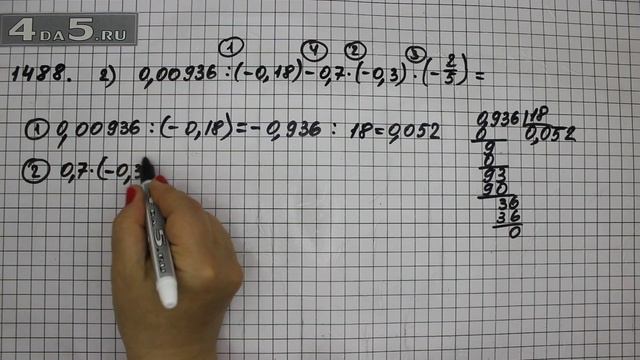 4DA5.RU
① ④ ② ③
1488. 2) 0,00936 : (-0,18) - 0,7 · (-0,3) · (-2/5) =
① 0,00936 : (-0,18) = -0,936 : 18 = 0,052
② 0,7 · (-0,3
0,936 | 18
0 0,052
9
0
93
90
36
36
0
4DA5.RU